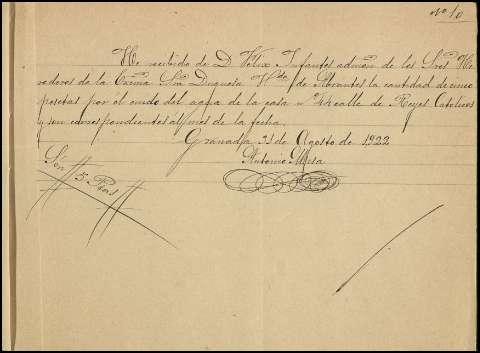 Nº 10
He recibido de D Félix Infantes admon de los Sres He
rederos de la Exma Sra Duquesa Vda de Abrantes la cantidad de cinco
pesetas por el cuido del agua de la casa nº 24 calle de Reyes Católicos
y son correspondientes al mes de la fecha.
Granada 31 de Agosto de 1922
Antonio Mesa
Son 5 Ptas